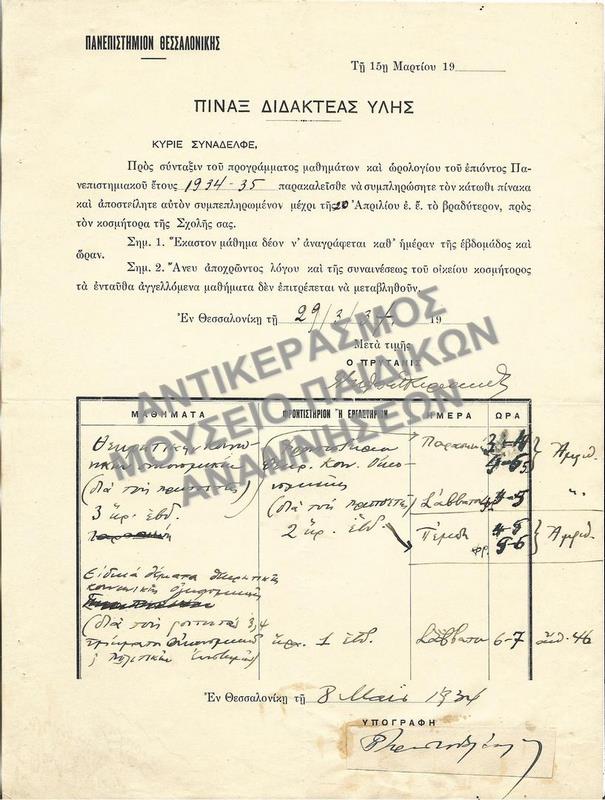 ΠΑΝΕΠΙΣΤΗΜΙΟΝ ΘΕΣΣΑΛΟΝΙΚΗΣ
Τῇ 15ῃ Μαρτίου 19
ΠΙΝΑΞ ΔΙΔΑΚΤΕΑΣ ΥΛΗΣ
ΚΥΡΙΕ ΣΥΝΑΔΕΛΦΕ,
Πρὸς σύνταξιν τοῦ προγράμματος μαθημάτων καὶ ὡρολογίου τοῦ ἐπιόντος Πα-
νεπιστημιακοῦ ἔτους 1934-35 παρακαλεῖσθε νὰ συμπληρώσητε τὸν κάτωθι πίνακα
καὶ ἀποστείλητε αὐτὸν συμπεπληρωμένον μέχρι τῆς 20 Ἀπριλίου ἐ. ἔ. τὸ βραδύτερον, πρὸς
τὸν κοσμήτορα τῆς Σχολῆς σας.
Σημ. 1. Ἕκαστον μάθημα δέον ν' ἀναγράφεται καθ' ἡμέραν τῆς ἑβδομάδος καὶ
ὥραν.
Σημ. 2. Ἄνευ ἀποχρῶντος λόγου καὶ τῆς συναινέσεως τοῦ οἰκείου κοσμήτορος
τὰ ἐνταῦθα ἀγγελλόμενα μαθήματα δὲν ἐπιτρέπεται νὰ μεταβληθοῦν.
Ἐν Θεσσαλονίκῃ τῇ 29/3/34 19
Μετὰ τιμῆς
Ο ΠΡΥΤΑΝΙΣ
ΑΝΤΙΚΕΡΑΣΜΟΣ
ΜΟΥΣΕΙΟ ΠΑΙΔΙΚΩΝ
ΑΝΑΜΝΗΣΕΩΝ
ΜΑΘΗΜΑΤΑ ΦΡΟΝΤΙΣΤΗΡΙΟΝ Ἢ ΕΡΓΑΣΤΗΡΙΟΝ ΗΜΕΡΑ ΩΡΑ
Θεωρητικὴ κοινω-
νικὴ οἰκονομικὴ
(διὰ τοὺς πρωτοετεῖς)
3 ὥρ. ἑβδ.
Φροντιστήριον
θεωρ. Κοιν. Οἰκο-
νομικῆς
(διὰ τοὺς πρωτοετεῖς)
2 ὥρ. ἑβδ.
Παρασκ. 3-4
4-5
Ἀμφιθ.
Σάββατον 4-5 "
Πέμπτη 4-5
φρ. 5-6
Ἀμφιθ.
Εἰδικὰ θέματα θεωρητικῆς
κοινωνικῆς οἰκονομικῆς
(διὰ τοὺς φοιτητὰς 3, 4
ὥρα 1 ἑβδ. Σάββατον 6-7 αἴθ. 46
Ἐν Θεσσαλονίκῃ τῇ 8 Μαΐου 1934
ΥΠΟΓΡΑΦΗ